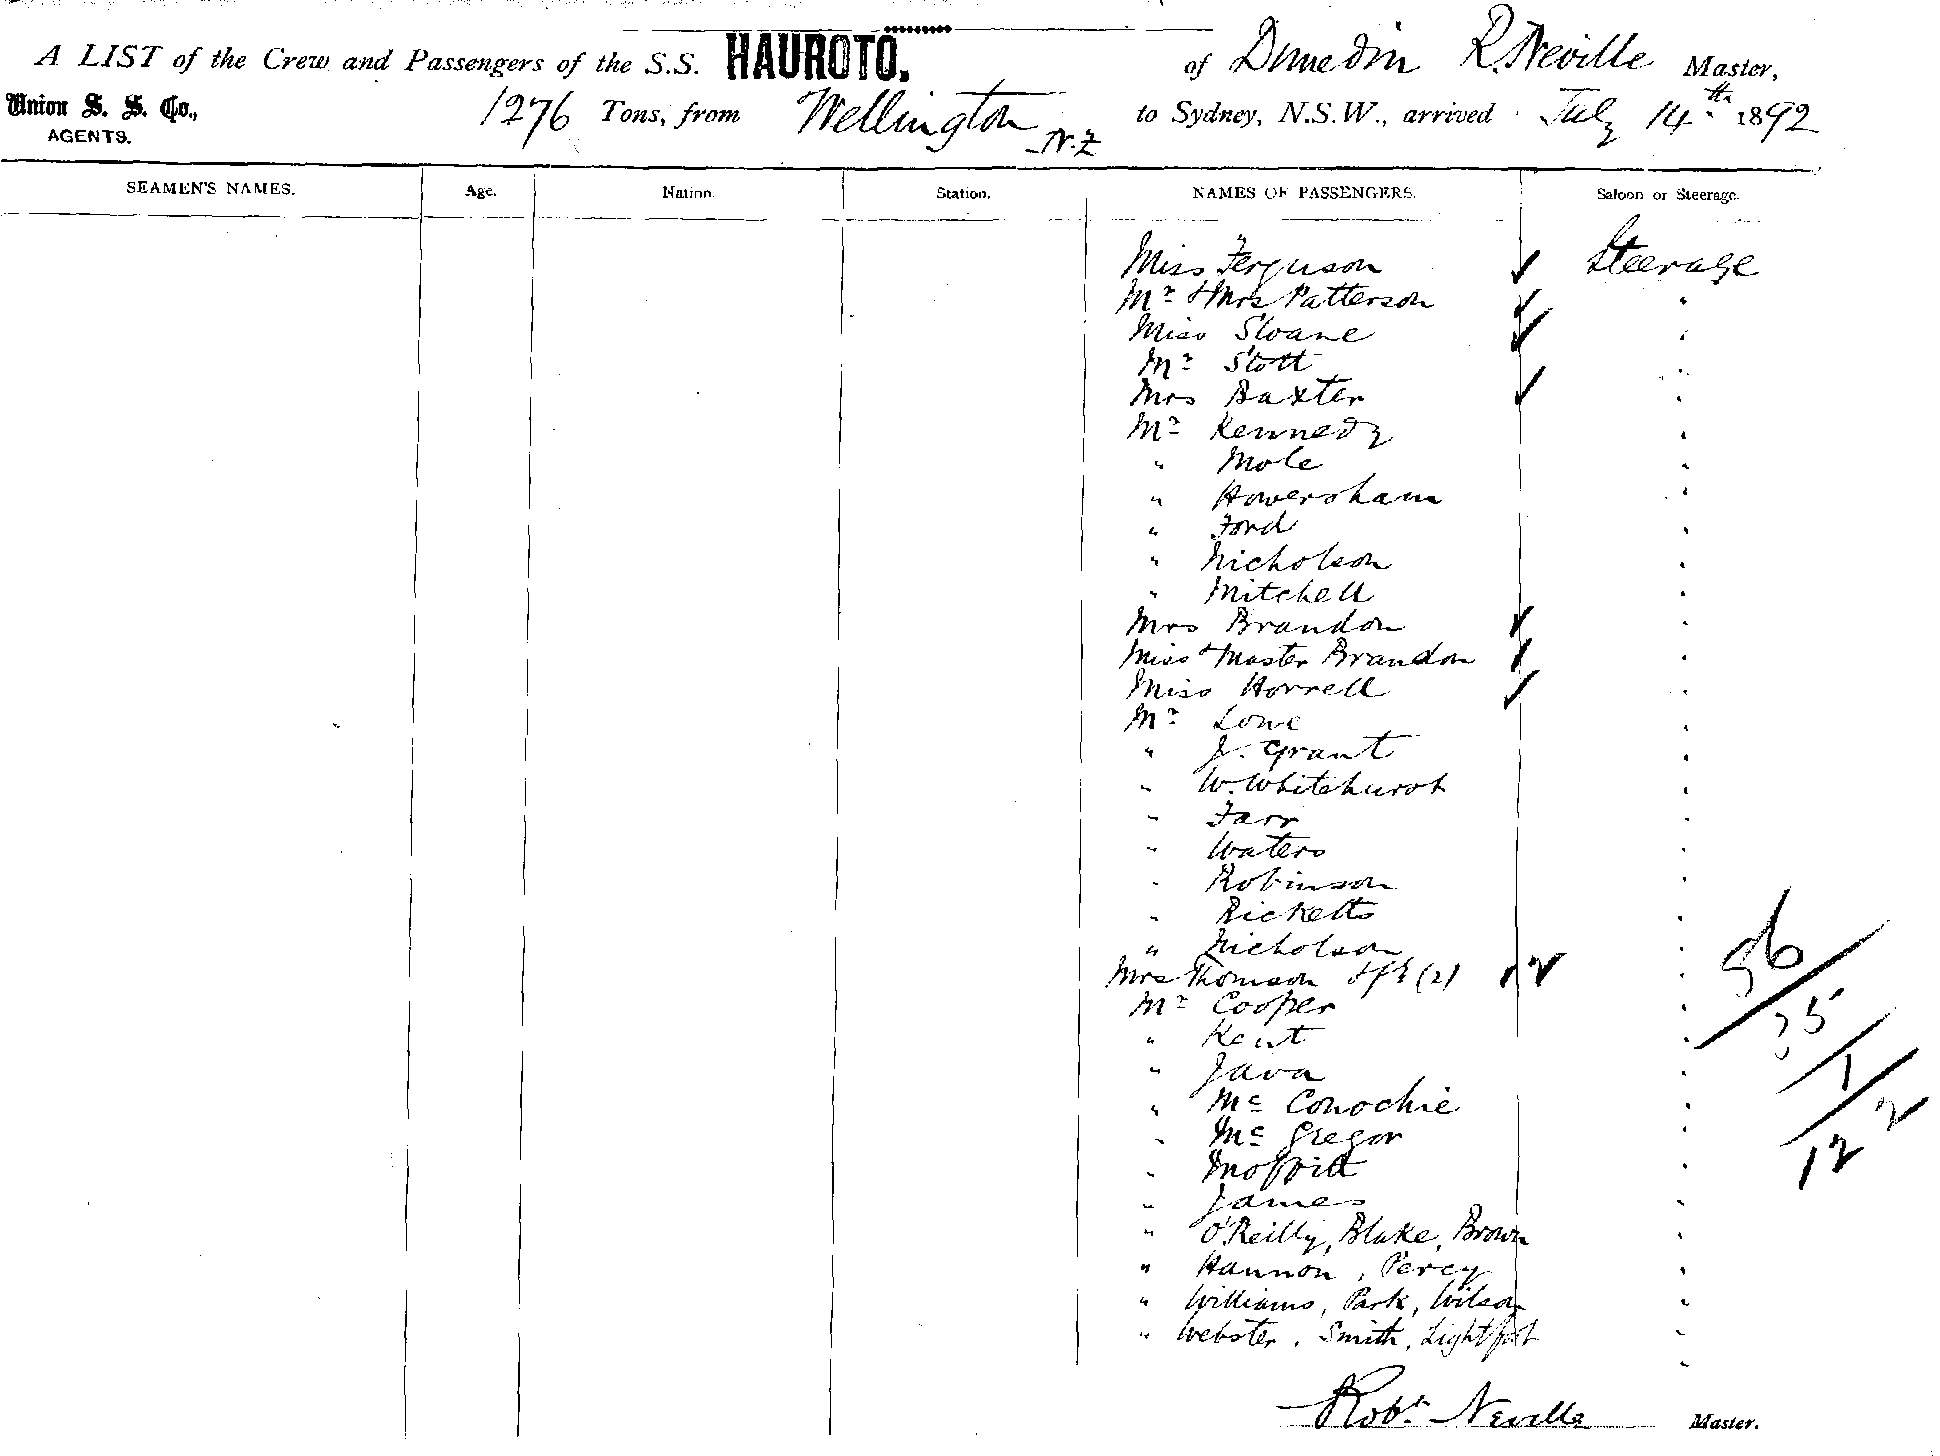 A LIST of the Crew and Passengers of the S.S. HAUROTO. of Dunedin R. Neville Master,
Union S. S. Co., AGENTS. 1276 Tons, from Wellington N.Z to Sydney, N.S.W., arrived July 14th 1892
SEAMEN'S NAMES. Age. Nation. Station. NAMES OF PASSENGERS. Saloon or Steerage.
Miss Ferguson Steerage
Mr & Mrs Patterson "
Miss Sloane "
Mr Stott "
Mrs Baxter "
Mr Kennedy "
" Mole "
" Howersham "
" Ford "
" Nicholson "
" Mitchell "
Mrs Brandon "
Miss & Master Brandon "
Miss Horrell "
Mr Lowe "
" J. Grant "
" W. Whitehurst "
" Farr "
" Waters "
" Robinson "
" Ricketts "
" Nicholson "
Mrs Thomson (2) "
Mr Cooper "
" Kent "
" Java "
" Mc Conochie "
" Mc Gregor "
" Moffitt "
" James "
" O'Reilly, Blake, Brown "
" Hannon, Percy "
" Williams, Park, Wilson "
" Webster, Smith, Lightfoot "
56
35
1
2
12
Robt Neville Master.